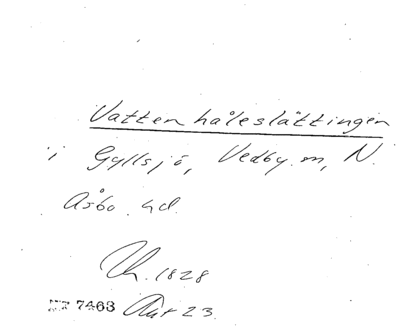 Vattenhåleslättingen
i Gyllsjö, Vedby sn, N.
Åsbo hd.
1828
7463 23